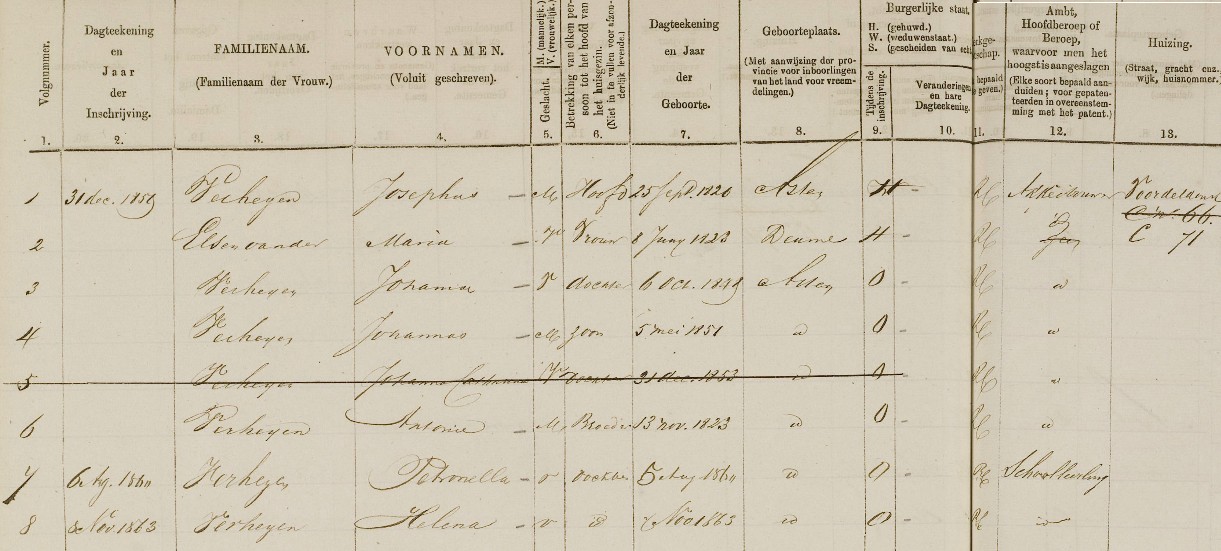 Volgnummer.
Dagteekening en Jaar der Inschrijving.
FAMILIENAAM. (Familienaam der Vrouw.)
VOORNAMEN. (Voluit geschreven.)
Geslacht. M. (mannelijk.) V. (vrouwelijk.)
Betrekking van elken persoon tot het hoofd van het huisgezin. (Niet in te vullen voor afzonderlijk levende.)
Dagteekening en Jaar der Geboorte.
Geboorteplaats. (Met aanwijzing der provincie voor inboorlingen van het land voor vreemdelingen.)
Burgerlijke staat. H. (gehuwd.) W. (weduwenstaat.) S. (gescheiden van
Tijdens de inschrijving.
Veranderingen en hare Dagteekening.
Ambt, Hoofdberoep of Beroep, waarvoor men het hoogst is aangeslagen (Elke soort bepaald aanduiden; voor gepatenteerden in overeenstemming met het patent.)
Huizing. (Straat, gracht enz. wijk, huisnommer.)
1. 2. 3. 4. 5. 6. 7. 8. 9. 10. 11. 12. 13.
1 31 dec. 1859 Verheyen Josephus - M Hoofd 25 sept. 1820 Asten H - RC Akkerbouwer
C no. 66.
2 Elsen van der Maria - V Vrouw 8 Juny 1823 Deurne H - RC C 71
3 Verheyen Johanna - V dochter 6 Oct. 1849 Asten 0 - RC id
4 Verheyen Johannes - M zoon 5 mei 1851 id 0 - RC id
5 Verheyen Johanna Catharina V dochter 31 dec. 1853 id 0 RC id
6 Verheyen Antonie - M Broeder 13 nov. 1823 id 0 - RC id
7 6 Ag. 1860 Verheyen Petronella - v dochter 5 Aug 1860 id 0 - RC Schoolleerling
8 Nov. 1863 Verheyen Helena - v id Nov 1863 id 0 - RC id